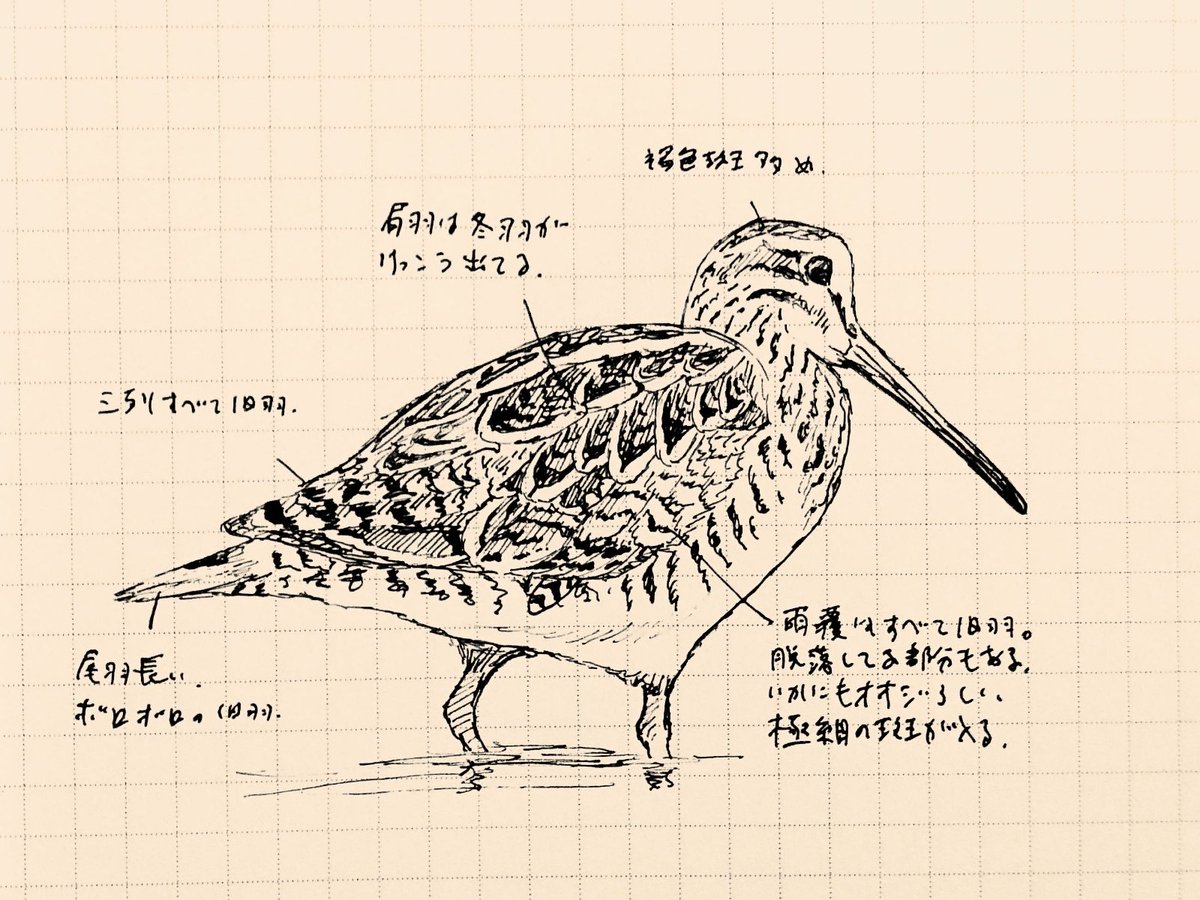 褐色斑多め.
肩羽は冬羽が
けっこう出てる.
三列すべて旧羽.
尾羽長い.
ボロボロの旧羽.
雨覆はすべて旧羽。
脱落してる部分もある.
いかにもオオジらしい、
極細の斑が入る.